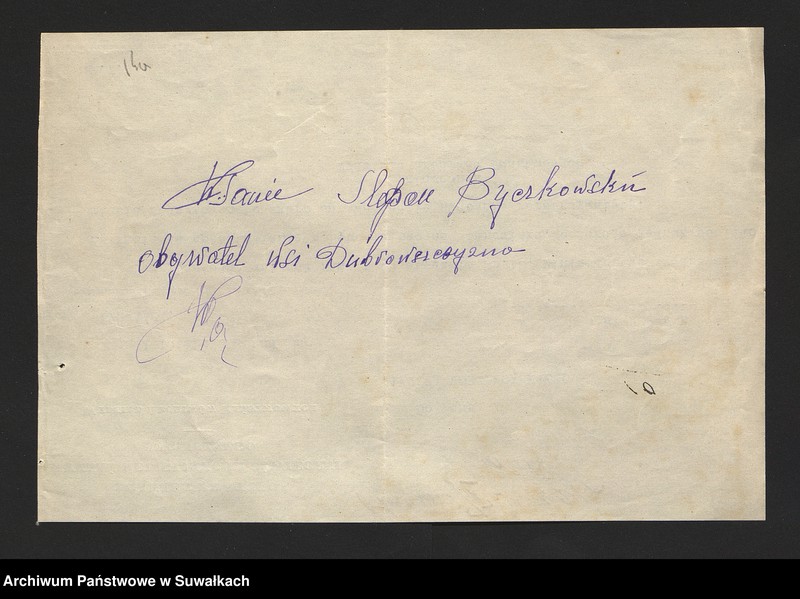 Stefan Byczkowski
obywatel wsi Dubrowszczyzna
Archiwum Państwowe w Suwałkach